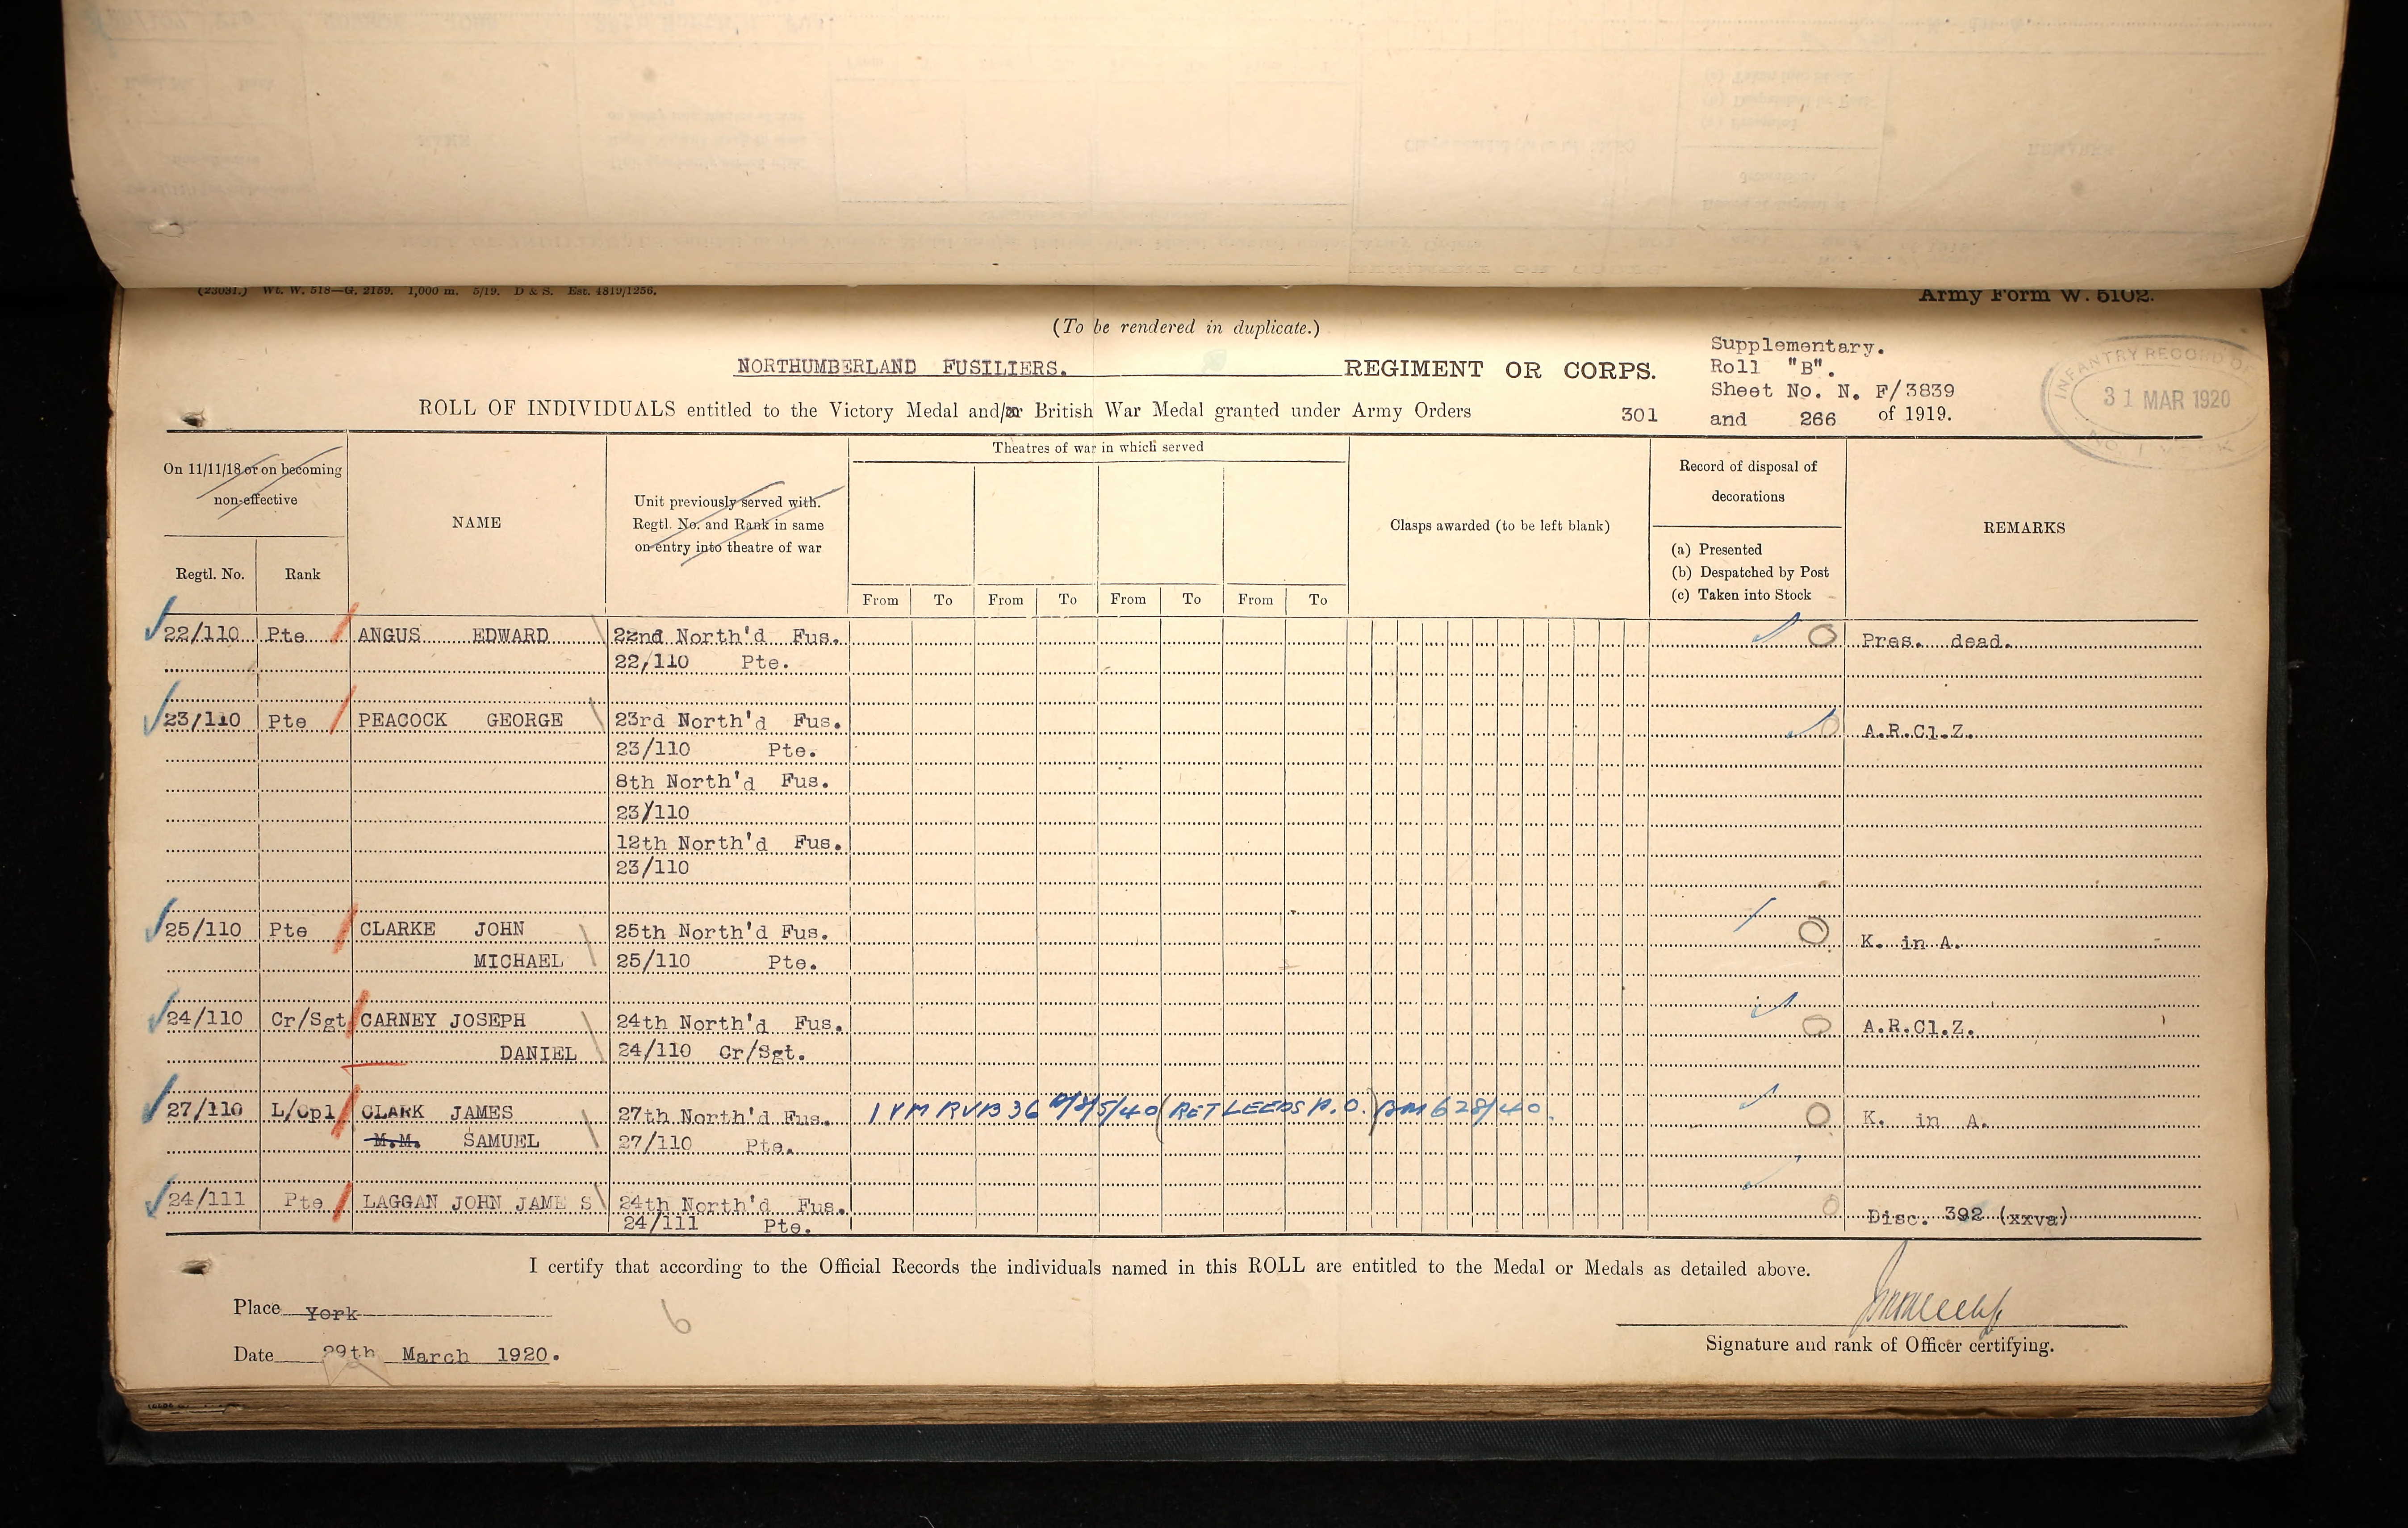 (23031.) Wt. W. 518—G. 2159. 1,000 m. 5/19. D & S. Est. 4819/1256.
Army Form W. 5102.
(To be rendered in duplicate.)
NORTHUMBERLAND FUSILIERS. REGIMENT OR CORPS.
Supplementary.
Roll "B".
Sheet No. N. F/3839
INFANTRY RECORD
31 MAR 1920
NO. 1 YORK
ROLL OF INDIVIDUALS entitled to the Victory Medal and/or British War Medal granted under Army Orders 301 and 266 of 1919.
On 11/11/18 or on becoming
non-effective
Regtl. No. Rank
NAME
Unit previously served with.
Regtl. No. and Rank in same
on entry into theatre of war
Theatres of war in which served
From To From To From To From To
Clasps awarded (to be left blank)
Record of disposal of
decorations
(a) Presented
(b) Despatched by Post
(c) Taken into Stock
REMARKS
22/110 Pte ANGUS EDWARD 22nd North'd Fus. Pres. dead.
22/110 Pte.
23/110 Pte PEACOCK GEORGE 23rd North'd Fus. A.R.Cl.Z.
23/110 Pte.
8th North'd Fus.
23/110
12th North'd Fus.
23/110
25/110 Pte CLARKE JOHN 25th North'd Fus. K. in A.
MICHAEL 25/110 Pte.
24/110 Cr/Sgt CARNEY JOSEPH 24th North'd Fus. A.R.Cl.Z.
DANIEL 24/110 Cr/Sgt.
27/110 L/Cpl CLARK JAMES 27th North'd Fus. (RET LEEDS P.O.) K. in A.
M.M. SAMUEL 27/110 Pte.
24/111 Pte LAGGAN JOHN JAMES 24th North'd Fus. Disc. 392 (xxva)
24/111 Pte.
I certify that according to the Official Records the individuals named in this ROLL are entitled to the Medal or Medals as detailed above.
Place York
6
Date 29th March 1920.
Signature and rank of Officer certifying.